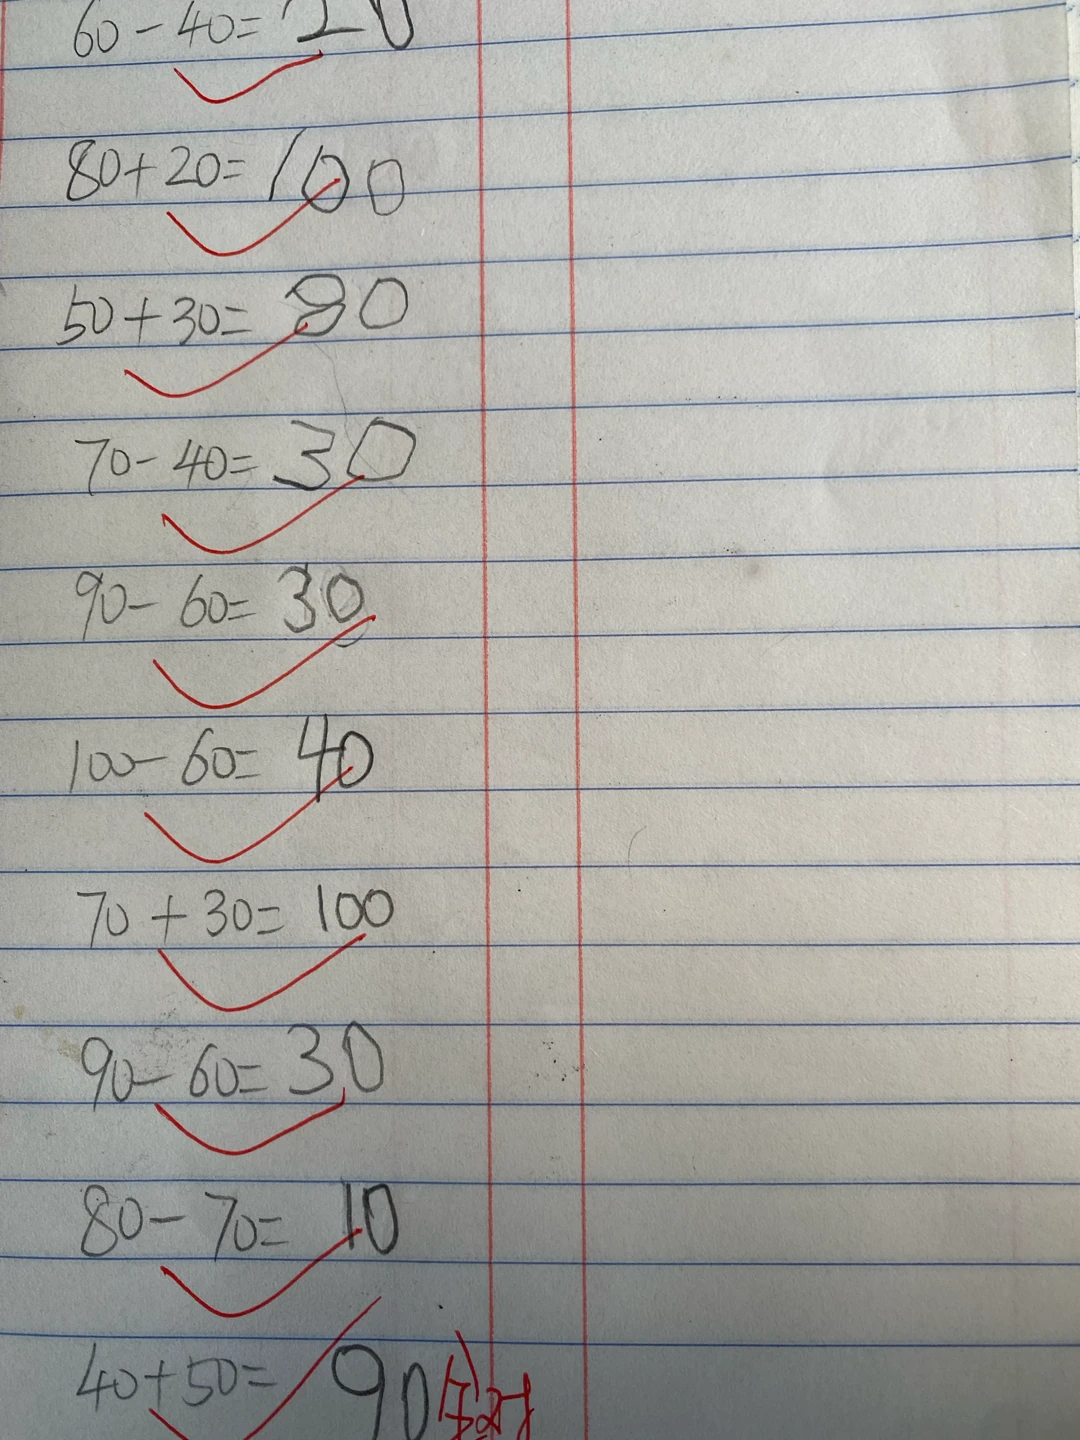 60-40=20
80+20=100
50+30=80
70-40=30
90-60=30
100-60=40
70+30=100
90-60=30
80-70=10
40+50=90